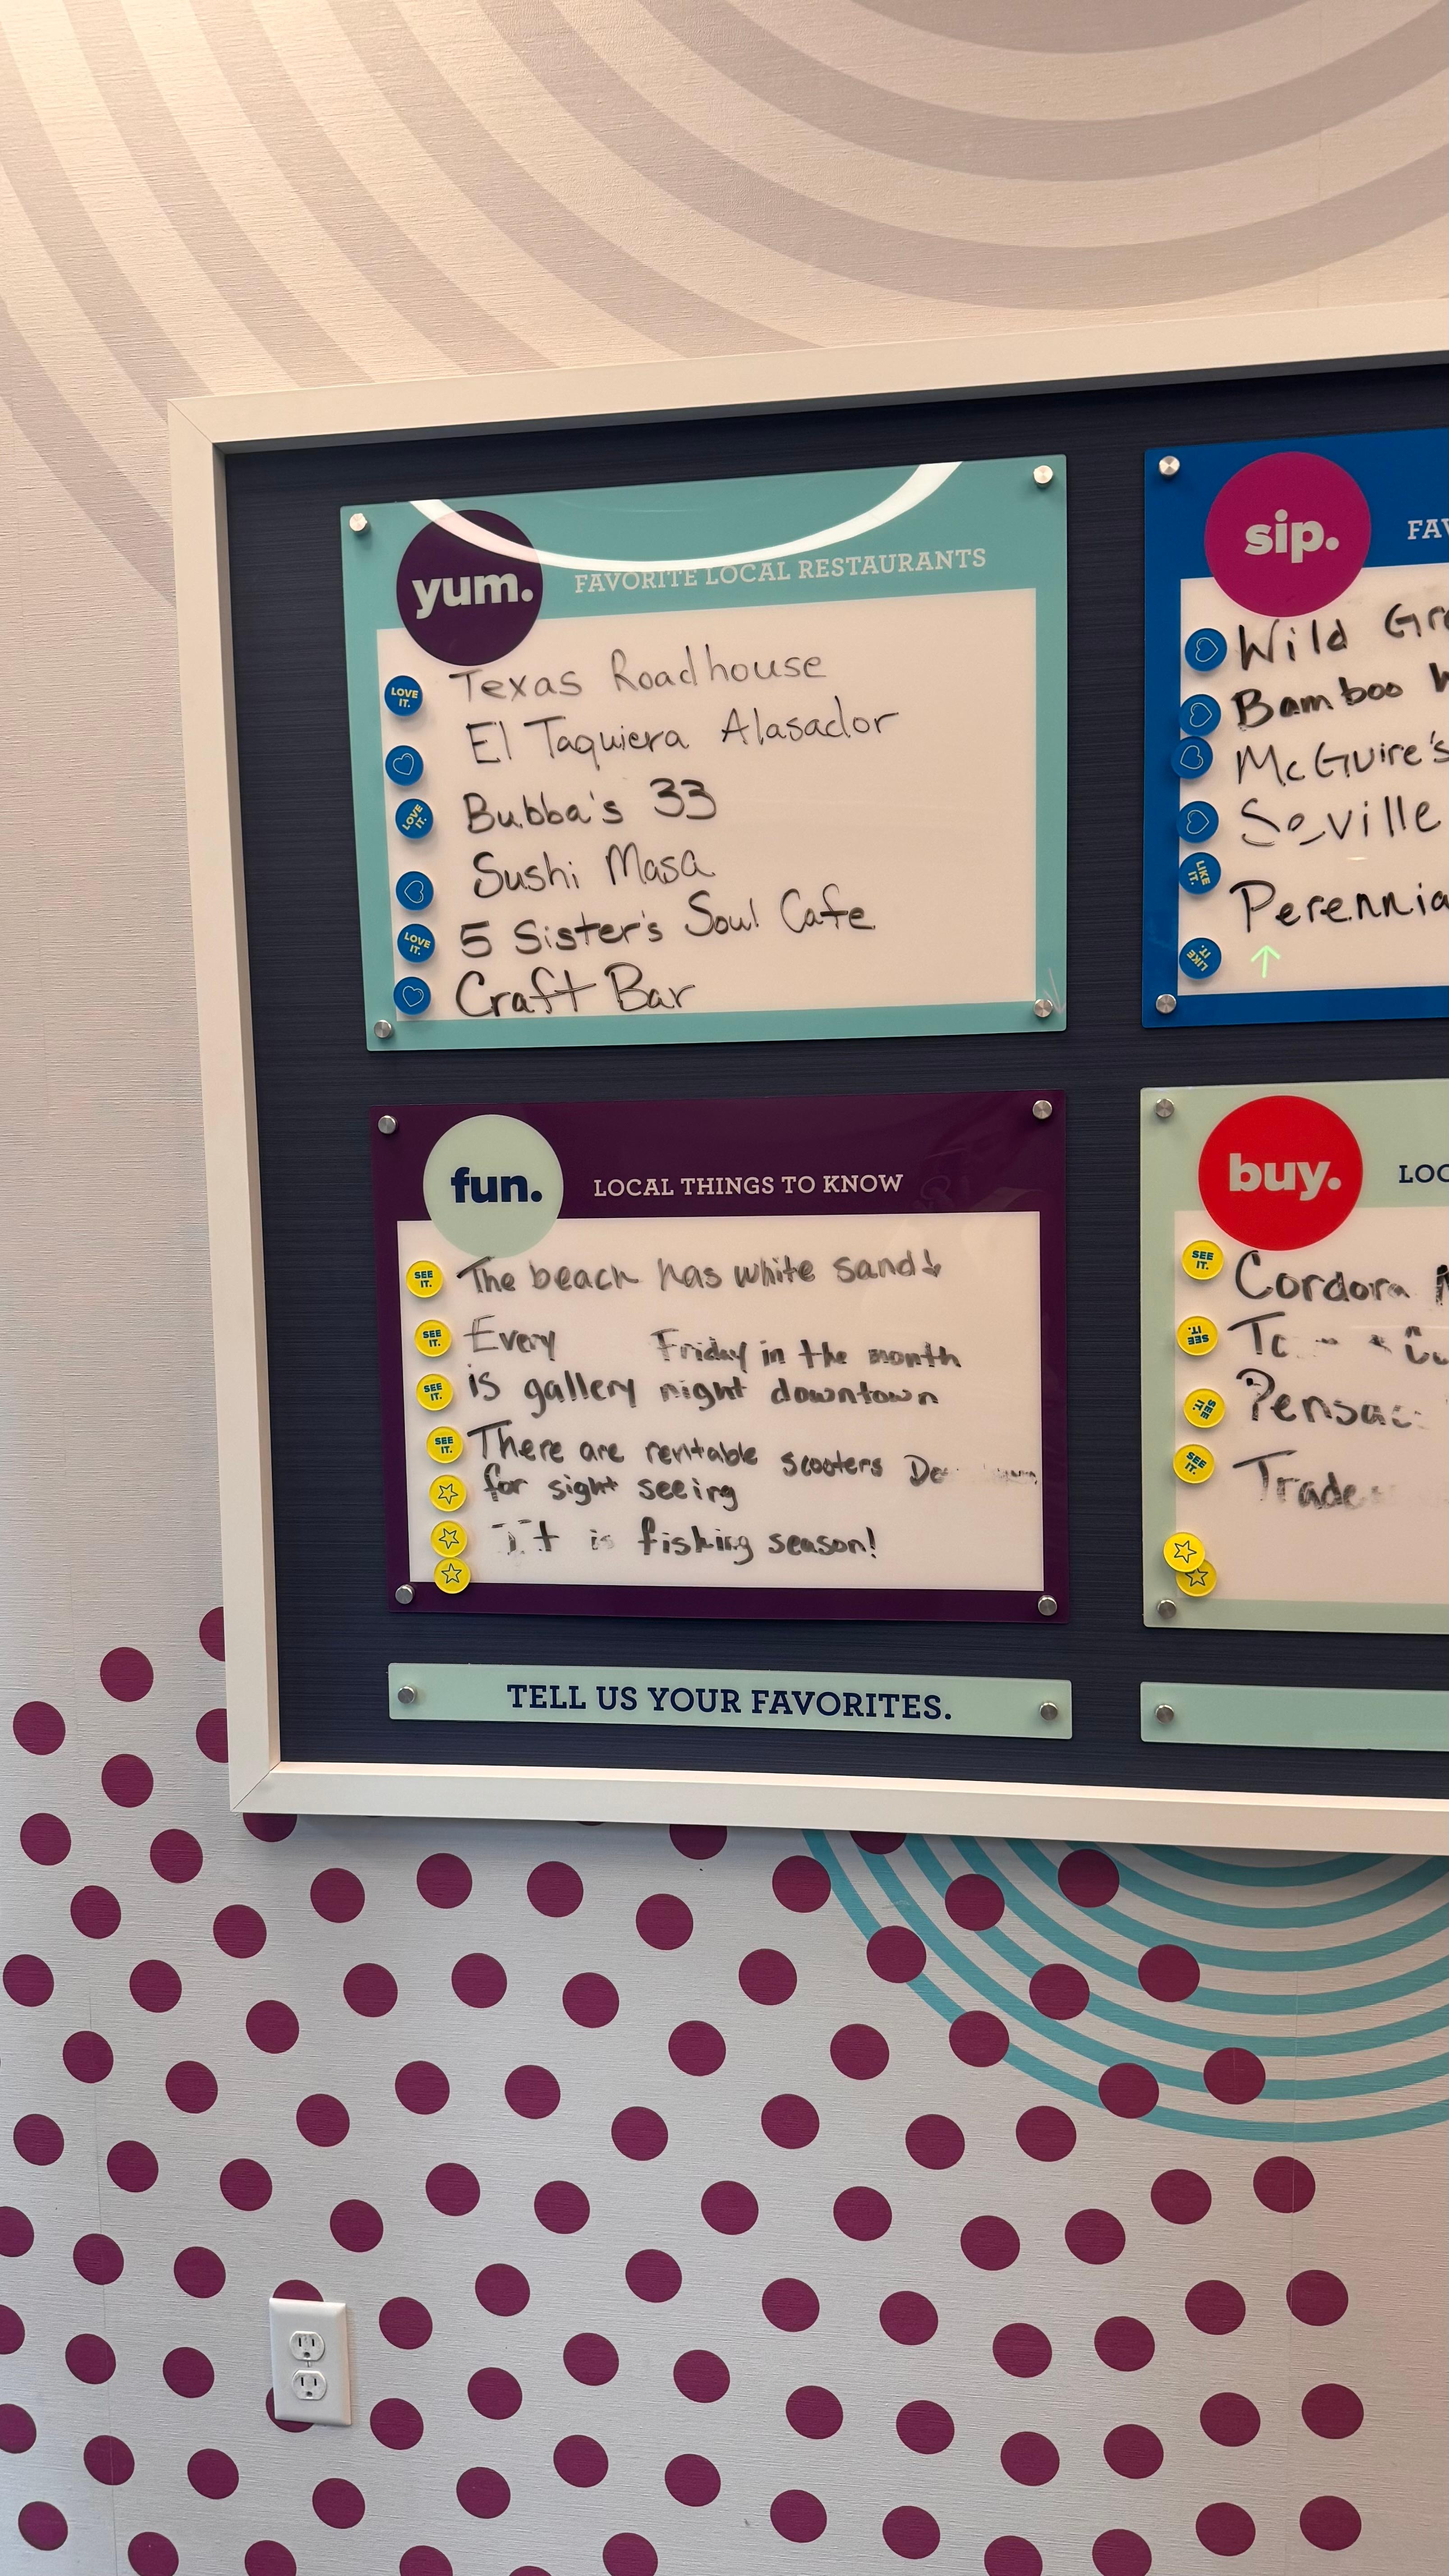 yum.
FAVORITE LOCAL RESTAURANTS
LOVE IT.
Texas Roadhouse
El Taquiera Alasador
LOVE IT.
Bubba's 33
Sushi Masa
LOVE IT.
5 Sister's Soul Cafe
Craft Bar
sip.
Wild
Bamboo
McGuire's
Seville
LIKE IT.
Perennia
LIKE IT.
fun.
LOCAL THINGS TO KNOW
SEE IT.
The beach has white sand
SEE IT.
Every Friday in the month
SEE IT.
is gallery night downtown
SEE IT.
There are rentable scooters
for sight seeing
It is fishing season!
buy.
SEE IT.
Cordora
SEE IT.
SEE IT.
Pensac
SEE IT.
Trade
TELL US YOUR FAVORITES.